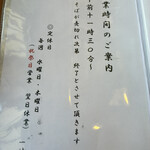 業時間のご案内
午前十一時三〇分〜
そばが売切れ次第 終了とさせて頂きます
◎定休日
毎週 水曜日・木曜日
(祝祭日営業 翌日休業)